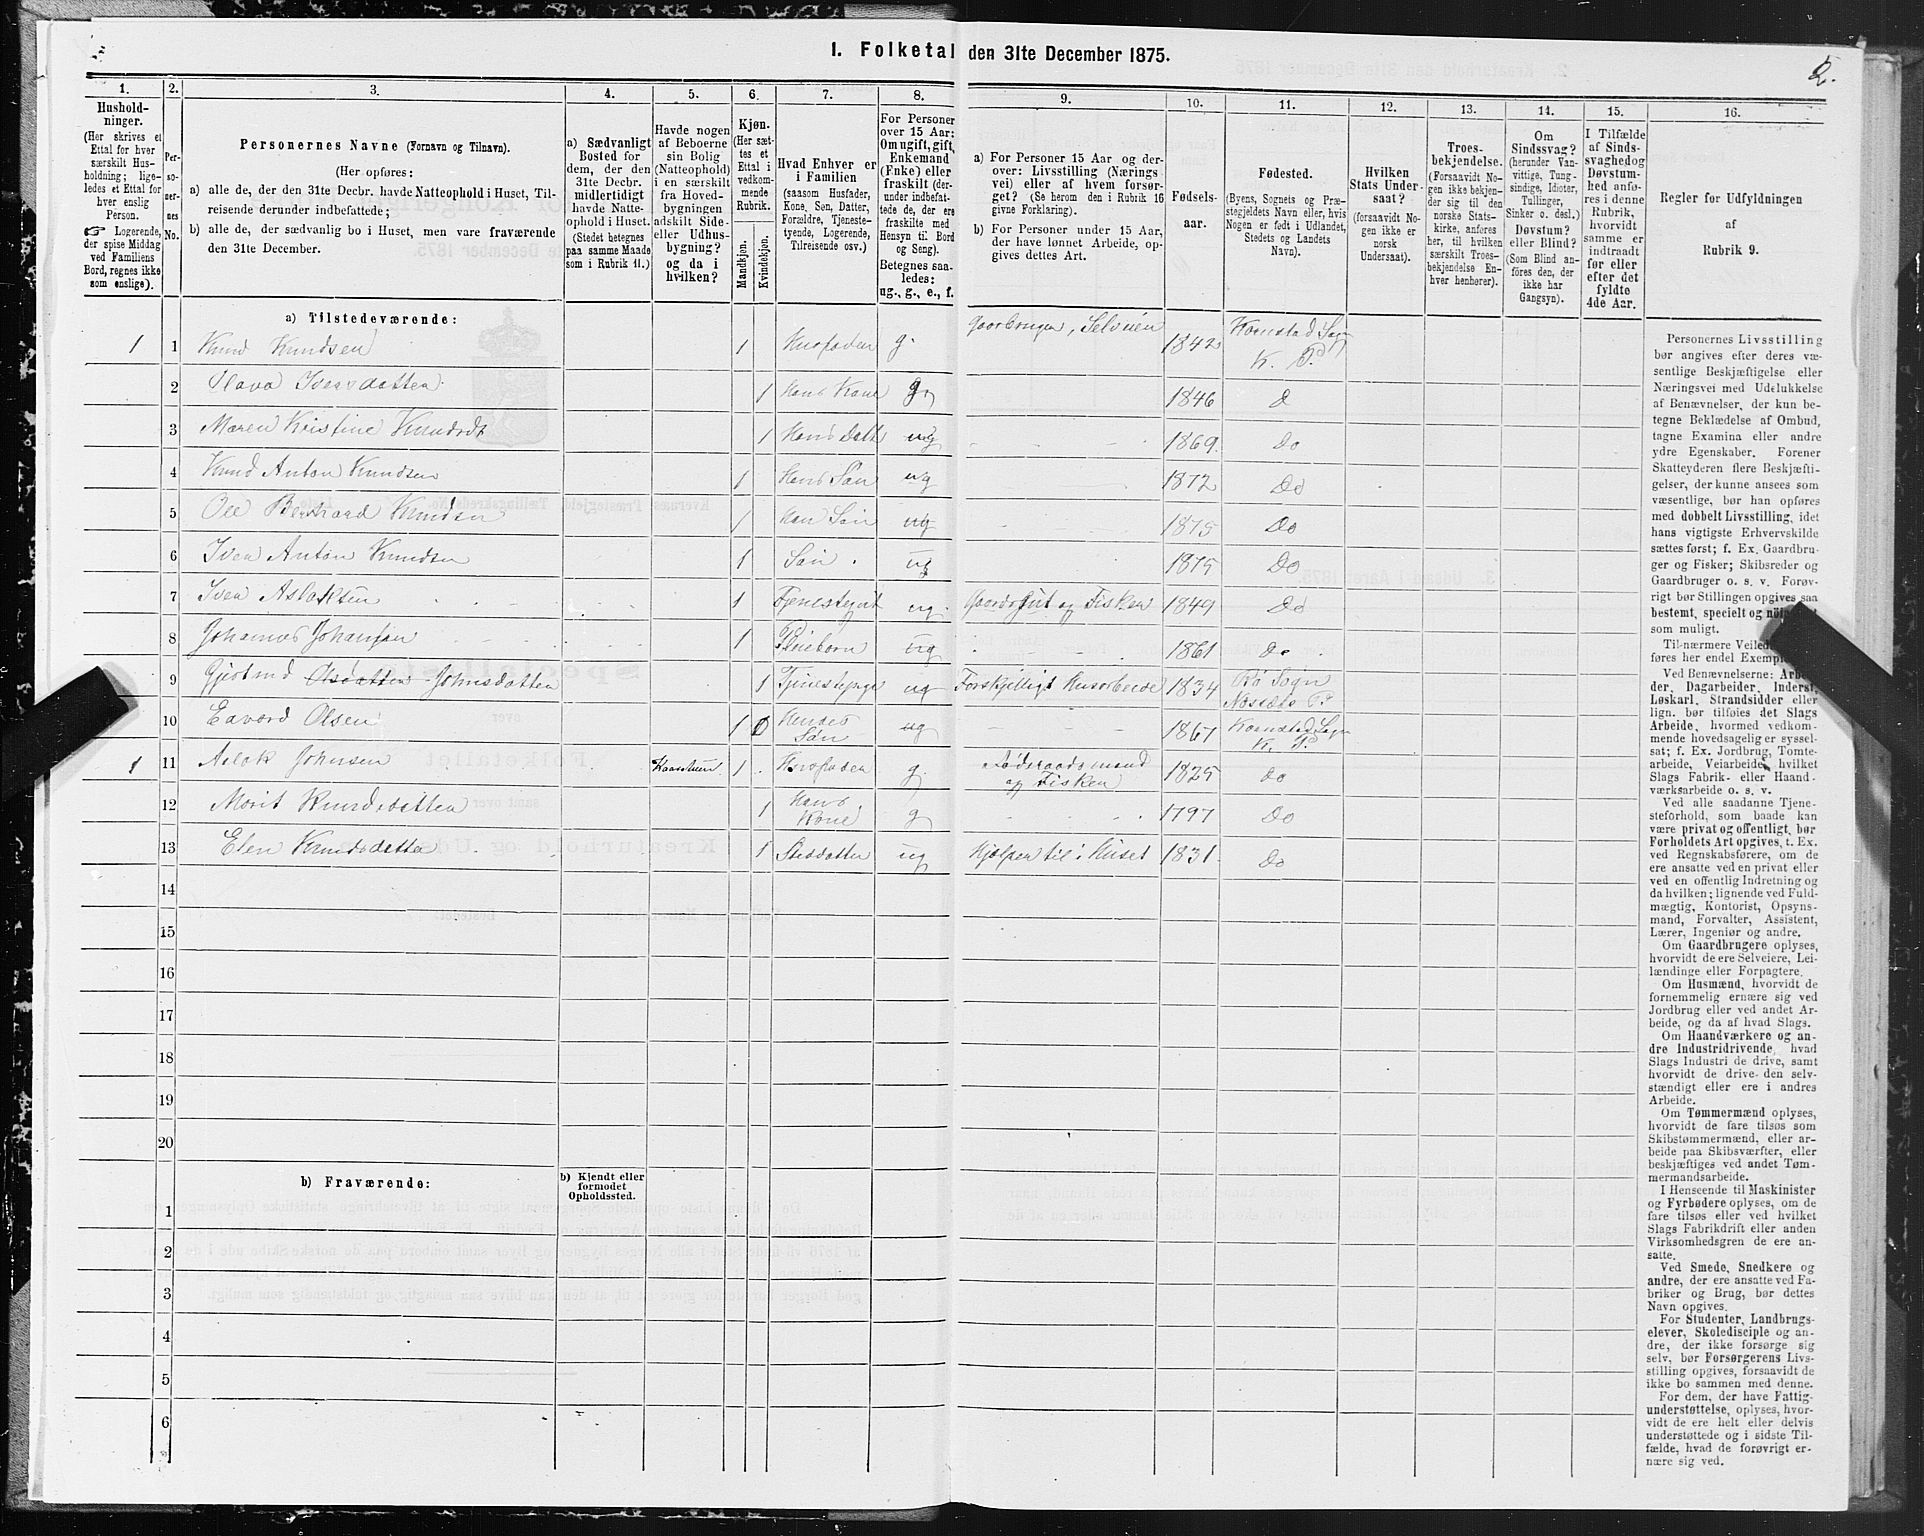 I. Folketal den 31te December 1875.
2.
1.
Hushold-
ninger.
(Her skrives et
Ettal for hver
særskilt Hus-
holdning; lige-
ledes et Ettal for
hver enslig
Person.
☞ Logerende,
der spise Middag
ved Familiens
Bord, regnes ikke
som enslige).
2.
Per-
so-
ner-
nes
No.
3.
Personernes Navne (Fornavn og Tilnavn).
(Her opføres:
a) alle de, der den 31te Decbr. havde Natteophold i Huset, Til-
reisende derunder indbefattede;
b) alle de, der sædvanlig bo i Huset, men vare fraværende
den 31te December.
4.
a) Sædvanligt
Bosted for
dem, der den
31te Decbr.
midlertidigt
havde Natte-
ophold i Huset.
(Stedet betegnes
paa samme Maade
som i Rubrik 11.)
5.
Havde nogen
af Beboerne
sin Bolig
(Natteophold)
i en særskilt
fra Hoved-
bygningen
adskilt Side-
eller Udhus-
bygning?
og da i
hvilken?
6.
Kjøn.
(Her sæt-
tes et
Ettal i
vedkom-
mende
Rubrik.
Mandkjøn.
Kvindekjøn.
7.
Hvad Enhver er
i Familien
(saasom Husfader,
Kone, Søn, Datter,
Forældre, Tjeneste-
tyende, Logerende,
Tilreisende osv.)
8.
For Personer
over 15 Aar:
Om ugift, gift,
Enkemand
(Enke) eller
fraskilt (der-
under indbefat-
tede de, der ere
fraskilte med
Hensyn til Bord
og Seng).
Betegnes saa-
ledes:
ug., g., e., f.
9.
a) For Personer 15 Aar og der-
over: Livsstilling (Nærings
vei) eller af hvem forsør-
get? (Se herom den i Rubrik 16
givne Forklaring).
b) For Personer under 15 Aar,
der have lønnet Arbeide, op-
gives dettes Art.
10.
Fødsels-
aar.
11.
Fødested.
(Byens, Sognets og Præ-
stegjeldets Navn eller, hvis
Nogen er født i Udlandet,
Stedets og Landets
Navn).
12.
Hvilken
Stats Under-
saat?
(forsaavidt No-
gen ikke er
norsk
Undersaat).
13.
Troes-
bekjendelse.
(Forsaavidt No-
gen ikke bekjen-
der sig til den
norske Stats-
kirke, anføres
her, til hvilken
særskilt Troes-
bekjendelse En-
hver henhører).
14.
Om
Sindssvag?
(herunder Van-
vittige, Tung-
sindige, Idioter,
Tullinger,
Sinker o. desl.)
Døvstum?
eller Blind?
(Som Blind an-
føres den, der
ikke har
Gangsyn).
15.
I Tilfælde
af Sinds-
svaghed og
Døvstum-
hed anfø-
res i denne
Rubrik,
hvorvidt
samme er
indtraadt
før eller
efter det
fyldte
4de Aar.
16.
Regler for Udfyldningen
af
Rubrik 9.
a) Tilstedeværende:
1 1 Knud Knudsen 1 Husfader g. Gaarbruger, Selveier 1842 Kornstad Sogn K. P.
2 Iversdatter 1 Hans Kone g 1846 D
3 Maren Kristine Knudsdt 1 Hans Datt ug 1869. Do
4 Knud Anton Knudsen 1 Hans Søn ug 1872 Do
5 Ole Bernhard Knudsen 1 Han Søn ug 1875 Do
6 Iver Anton Knudsen 1 Søn ug 1875 Do
7 Iver Aslaksen 1 Tjenestegut ug. Gaardsgut og Fisker 1849 Do
8 Johannes Johansen 1 Pleiebørn ug 1861 Do
9 Gjertrud Olsdatter Johnsdatter 1 ug Forskjelligt Husarbeide 1834 Rø Sogn Næssets P.
10 Edvard Olsen 1 0 Hendes Søn ug 1867 Kornstad Sogn K. P.
1 11 Aslak Johnsen 1 Husfader g. Føderaadsmand og Fisker 1825 do
12 Marit Knudsdatter 1 Hans Kone g 1797 Do
13 Elen Knudsdatter 1 Steddatter ug Hjelper til i Huset 1831 Do
14
15
16
17
18
19
20
b) Fraværende:
b) Kjendt eller
formodet
Opholdssted.
1
2
3
4
5
6
Personernes Livsstilling
bør angives efter deres væ-
sentlige Beskjæftigelse eller
Næringsvei med Udelukkelse
af Benævnelser, der kun be-
tegne Beklædelse af Ombud,
tagne Examina eller andre
ydre Egenskaber. Forener
Skatteyderen flere Beskjæfti-
gelser, der kunne ansees som
væsentlige, bør han opføres
med dobbelt Livsstilling, idet
hans vigtigste Erhvervskilde
sættes først; f. Ex. Gaardbru-
ger og Fisker; Skibsreder og
Gaardbruger o. s. v. Forøv-
rigt bør Stillingen opgives saa
bestemt, specielt og
som muligt.
Til nærmere
føres her endel
Ved Benævnelserne:
der, Dagarbeider, Inderst,
Løskarl, Strandsidder eller
lign. bør tilføies det Slags
Arbeide, hvormed vedkom-
mende hovedsagelig er syssel-
sat; f. Ex. Jordbrug, Tomte-
arbeide, Veiarbeide, hvilket
Slags Fabrik- eller Haand-
værksarbeide o. s. v.
Ved alle saadanne Tjene-
steforhold, som baade kan
være privat og offentligt, bør
Forholdets Art opgives, t. Ex.
ved Regnskabsførere, om de
ere ansatte ved en privat eller
ved en offentlig Indretning og
da hvilken; lignende ved Fuld-
mægtig, Kontorist, Opsyns-
mand, Forvalter, Assistent,
Lærer, Ingeniør og andre.
Om Gaardbrugere oplyses,
hvorvidt de ere Selveiere, Lei-
lændinge eller Forpagtere.
Om Husmænd, hvorvidt de
fornemmelig ernære sig ved
Jordbrug eller ved andet Ar-
beide, og da af hvad Slags.
Om Haandværkere og an-
dre Industridrivende, hvad
Slags Industri de drive, samt
hvorvidt de drive den selv-
stændigt eller ere i andres
Arbeide.
Om Tømmermænd oplyses,
hvorvidt de fare tilsøs som
Skibstømmermænd, eller ar-
beide paa Skibsværfter, eller
beskjæftiges ved andet Tøm-
mermandsarbeide.
I Henseende til Maskinister
og Fyrbødere oplyses, om de
fare tilsøs eller ved hvilket
Slags Fabrikdrift eller anden
Virksomhedsgren de ere an-
satte.
Ved Smede, Snedkere og
andre, der ere ansatte ved Fa-
briker og Brug, bør dettes
Navn opgives.
For Studenter, Landbrugs-
elever, Skoledisciple og an-
dre, der ikke forsørge sig
selv, bør Forsørgerens Livs-
stilling opgives, forsaavidt de
ikke bo sammen med denne.
For dem, der have Fattig-
understøttelse, oplyses, hvor-
vidt de ere helt eller delvis
understøttede og i sidste Til-
fælde, hvad de forøvrigt er-
nære sig ved.